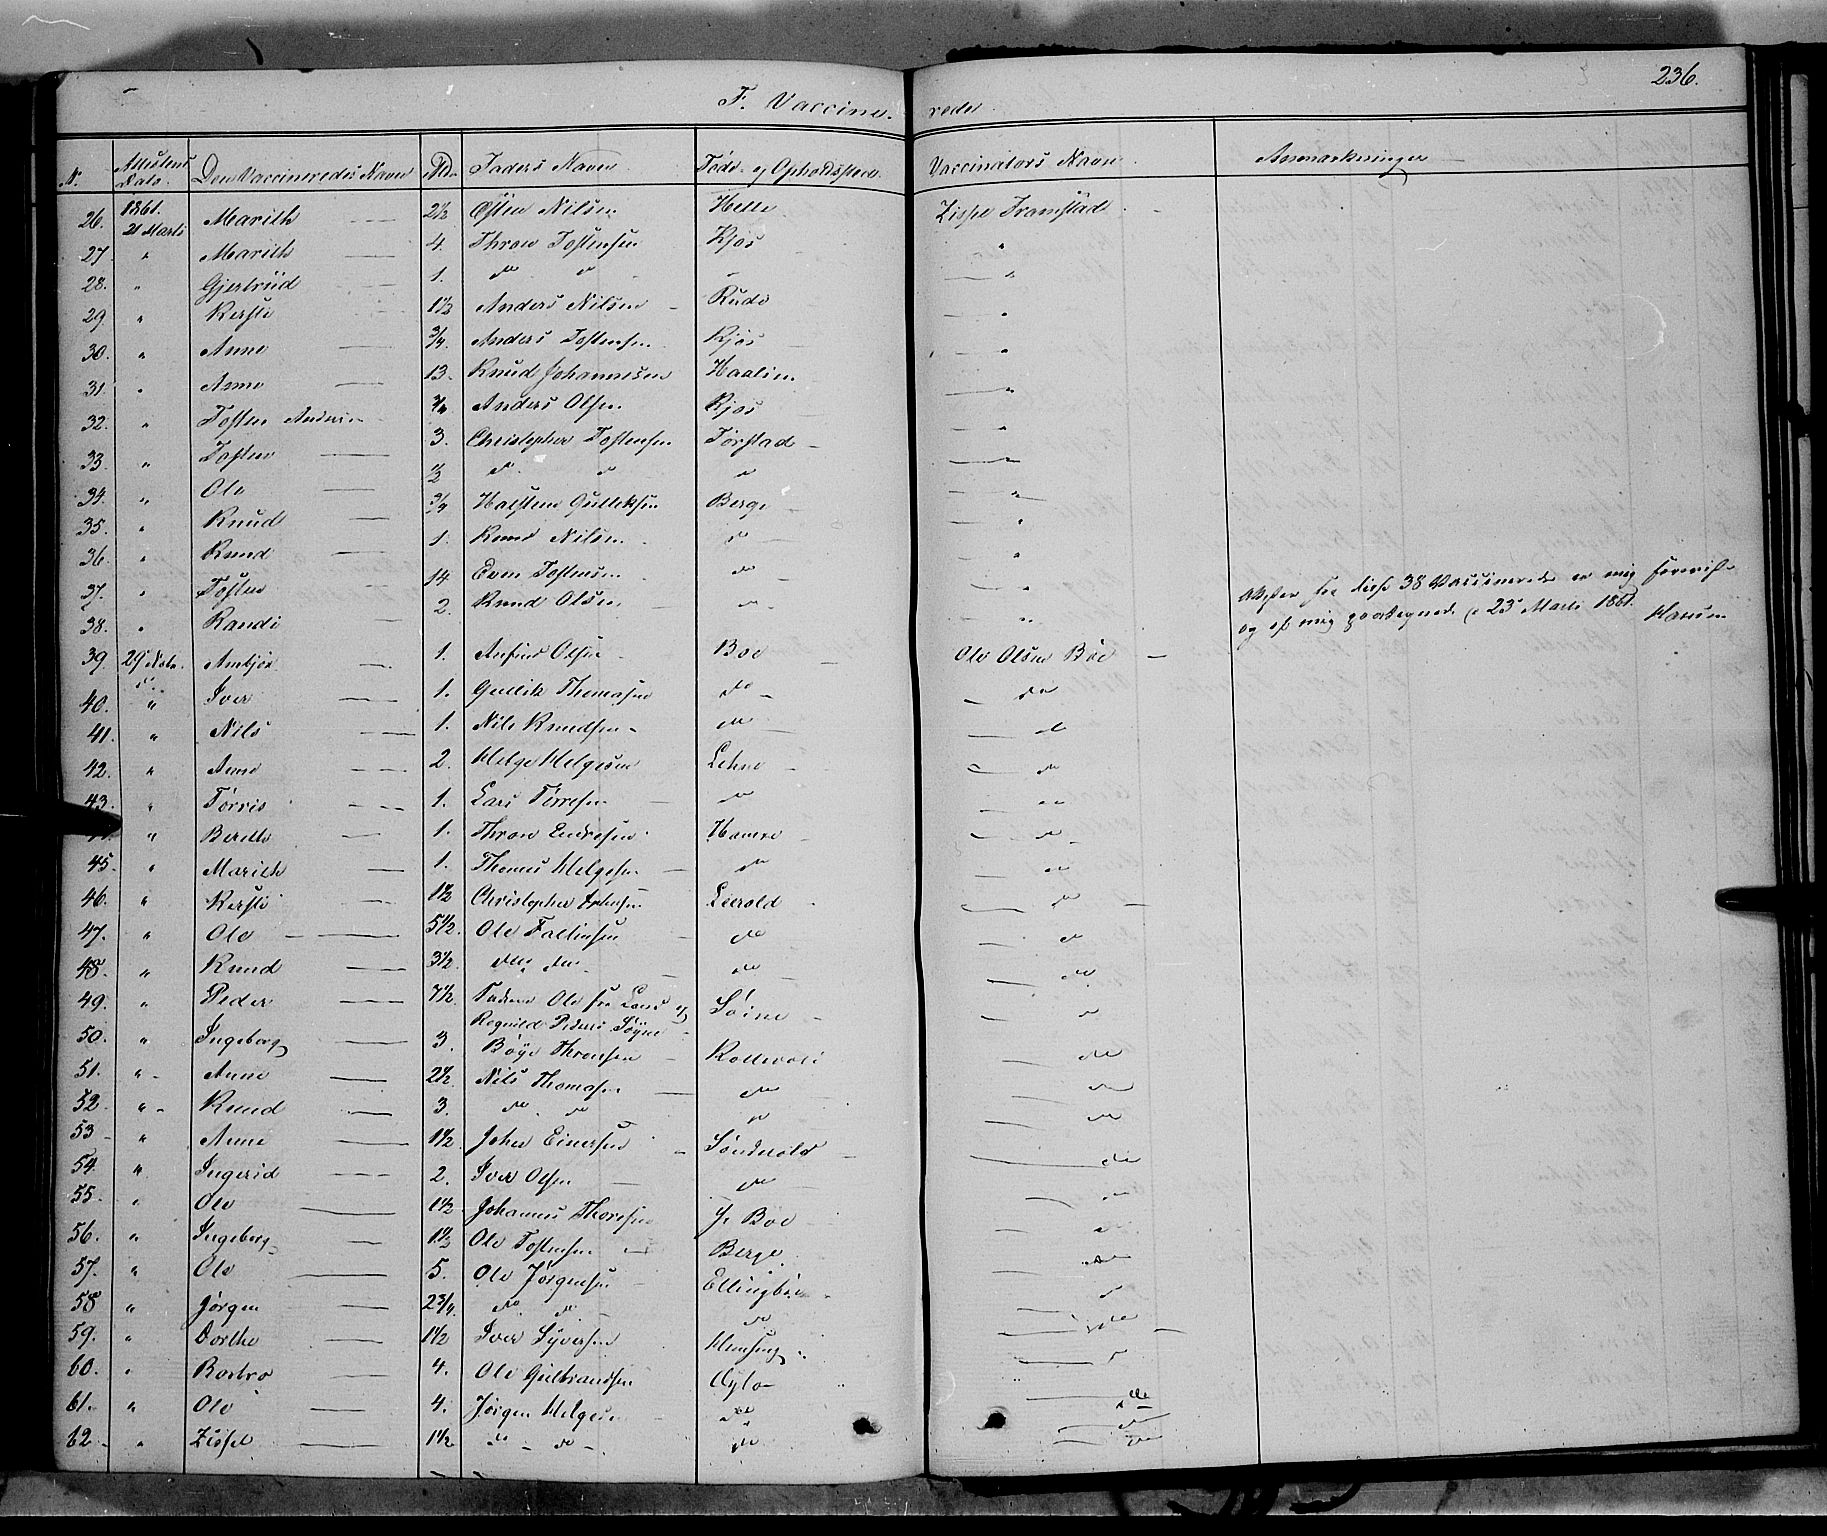 236.
F. Vaccine- rede
N. Attestens Dato. Den Vaccineredes Navn Ald. Faders Navn Føde- og Opholdssted. Vaccinators Navn Anmærkninger
26. 1861. 21 Marts Marith 2 1/2 Østen Nilsen Helle Zispe Framstad
27. " Marith 4. Thron Tostensen Kjøs "
28. " Gjertrud 1. do do " "
29 " Kersti 1 1/2 Anders Nilsen Rudi "
30. " Anne 3/4 Anders Tostensen Kjøs "
31. " Anne 13. Knud Johannesen Haalien "
32. " Tosten Andersen 3/4 Anders Olsen Kjøs "
33. " Tosten 3. Christopher Tostensen Torstad "
34. " Ole 1/2 do do do "
35. " Knud 3/4 Halsten Gulleksen Berge "
36. " Knud 1. Knud Nilsen do "
37. " Tosten 14 Even Tostensen do "
38. " Randi 2. Knud Olsen do "
Attester for disse 38 Vaccinerede er mig foreviist
og af mig paategnede, 23 Marts 1861.
39. 29 Ambjør 1. Anfind Olsen Boe Ole Olsen Böe
40. " Iver 1. Gullik Thomasen do do
41. " Nils 1. Nils Knudsen do do
42. " Anne 2. Helge Helgesen Lehne do
43. " Torris 1. Lars Torresen do do
" Berithe 1. Thron Endresen do
45. " Marith 1. Thomas Helgesen do do
46. " Kersti 1 1/2 Christopher do
47. " Ole 5 1/2. Ole do do
48. " Knud 3 1/2. do do do do
49. " Peder 7 1/2 Ole fra og Søine do
Ragnild Peders Søyne
50. " Ingeborg 3. Böye Thronsen do
51. " Anne 2 1/2. Nils Thomasen do do
52 " Knud 3. do do do do
53 " Anne 1 1/2 Johan Einersen do
54. " Ingerid 2. Iver Olsen do do
55. " Ole 1 1/2 Johannes Thoresen Y. Boe do
56. " Ingeborg 1 1/2 Ole Tostensen Berge do
57. " Ole 5. Ole Jørgensen do
58 " Jørgen 2 3/4. do do do do
59. " Dorthe 1 1/2 Iver Syversen do
60. " Barbro 4. Ole Gulbrandsen Oylo "
61. " Ole 4. Jørgen Helgesen do do
62 " Zissel 1 1/2 do do do do